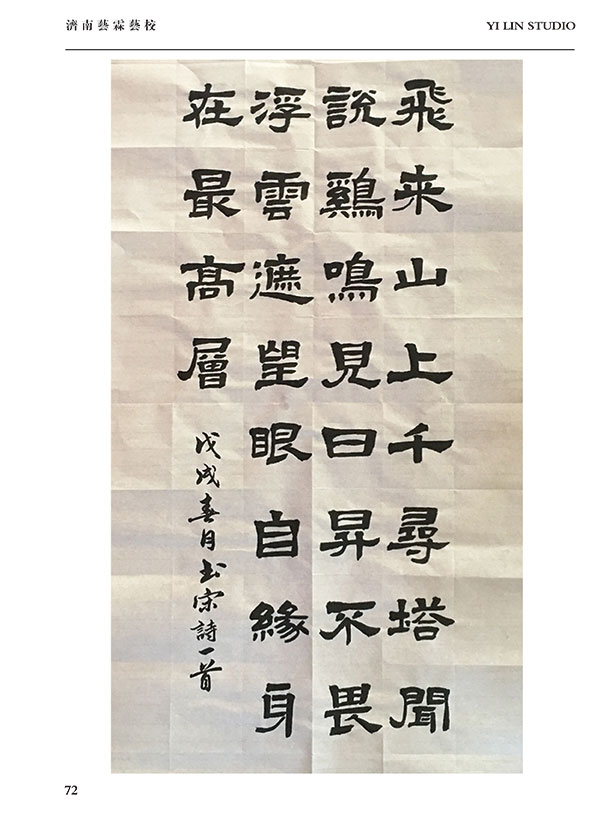 濟南藝霖藝校
YI LIN STUDIO
飛来山上千尋塔聞
說鷄鳴見日昇不畏
浮雲遮望眼自緣身
在最高層
戊戌春月书宋詩一首
72